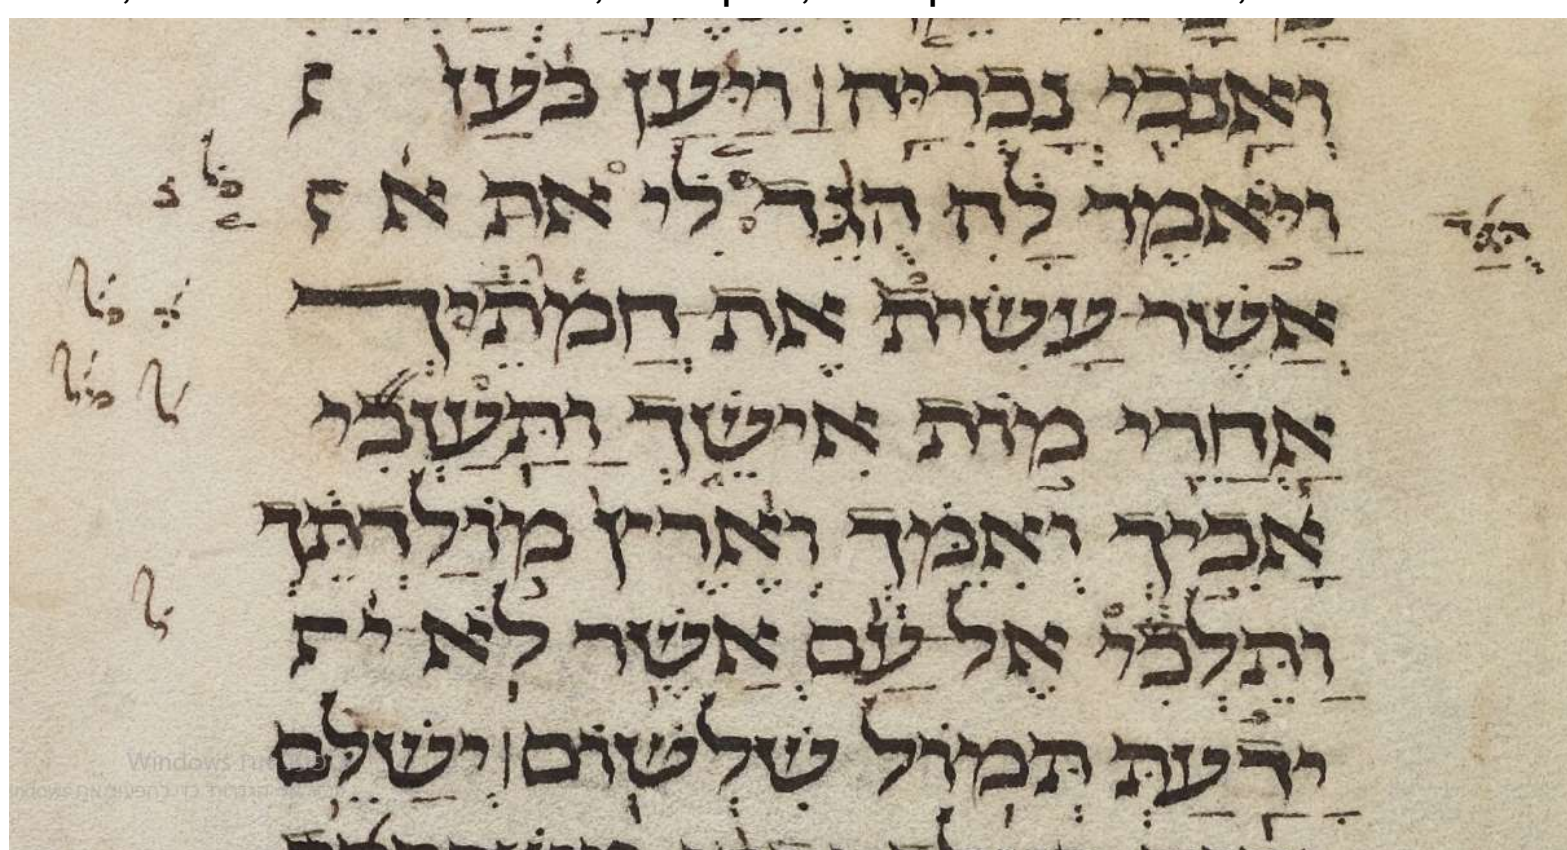 ואנכי נכריה׃ ויען בעז
ויאמר לה הגד לי את א
אשר עשית את חמתיך
אחרי מות אישך ותעזבי
אביך ואמך וארץ מולדתך
ותלכי אל עם אשר לא י
ידעת תמול שלשום׃ ישלם